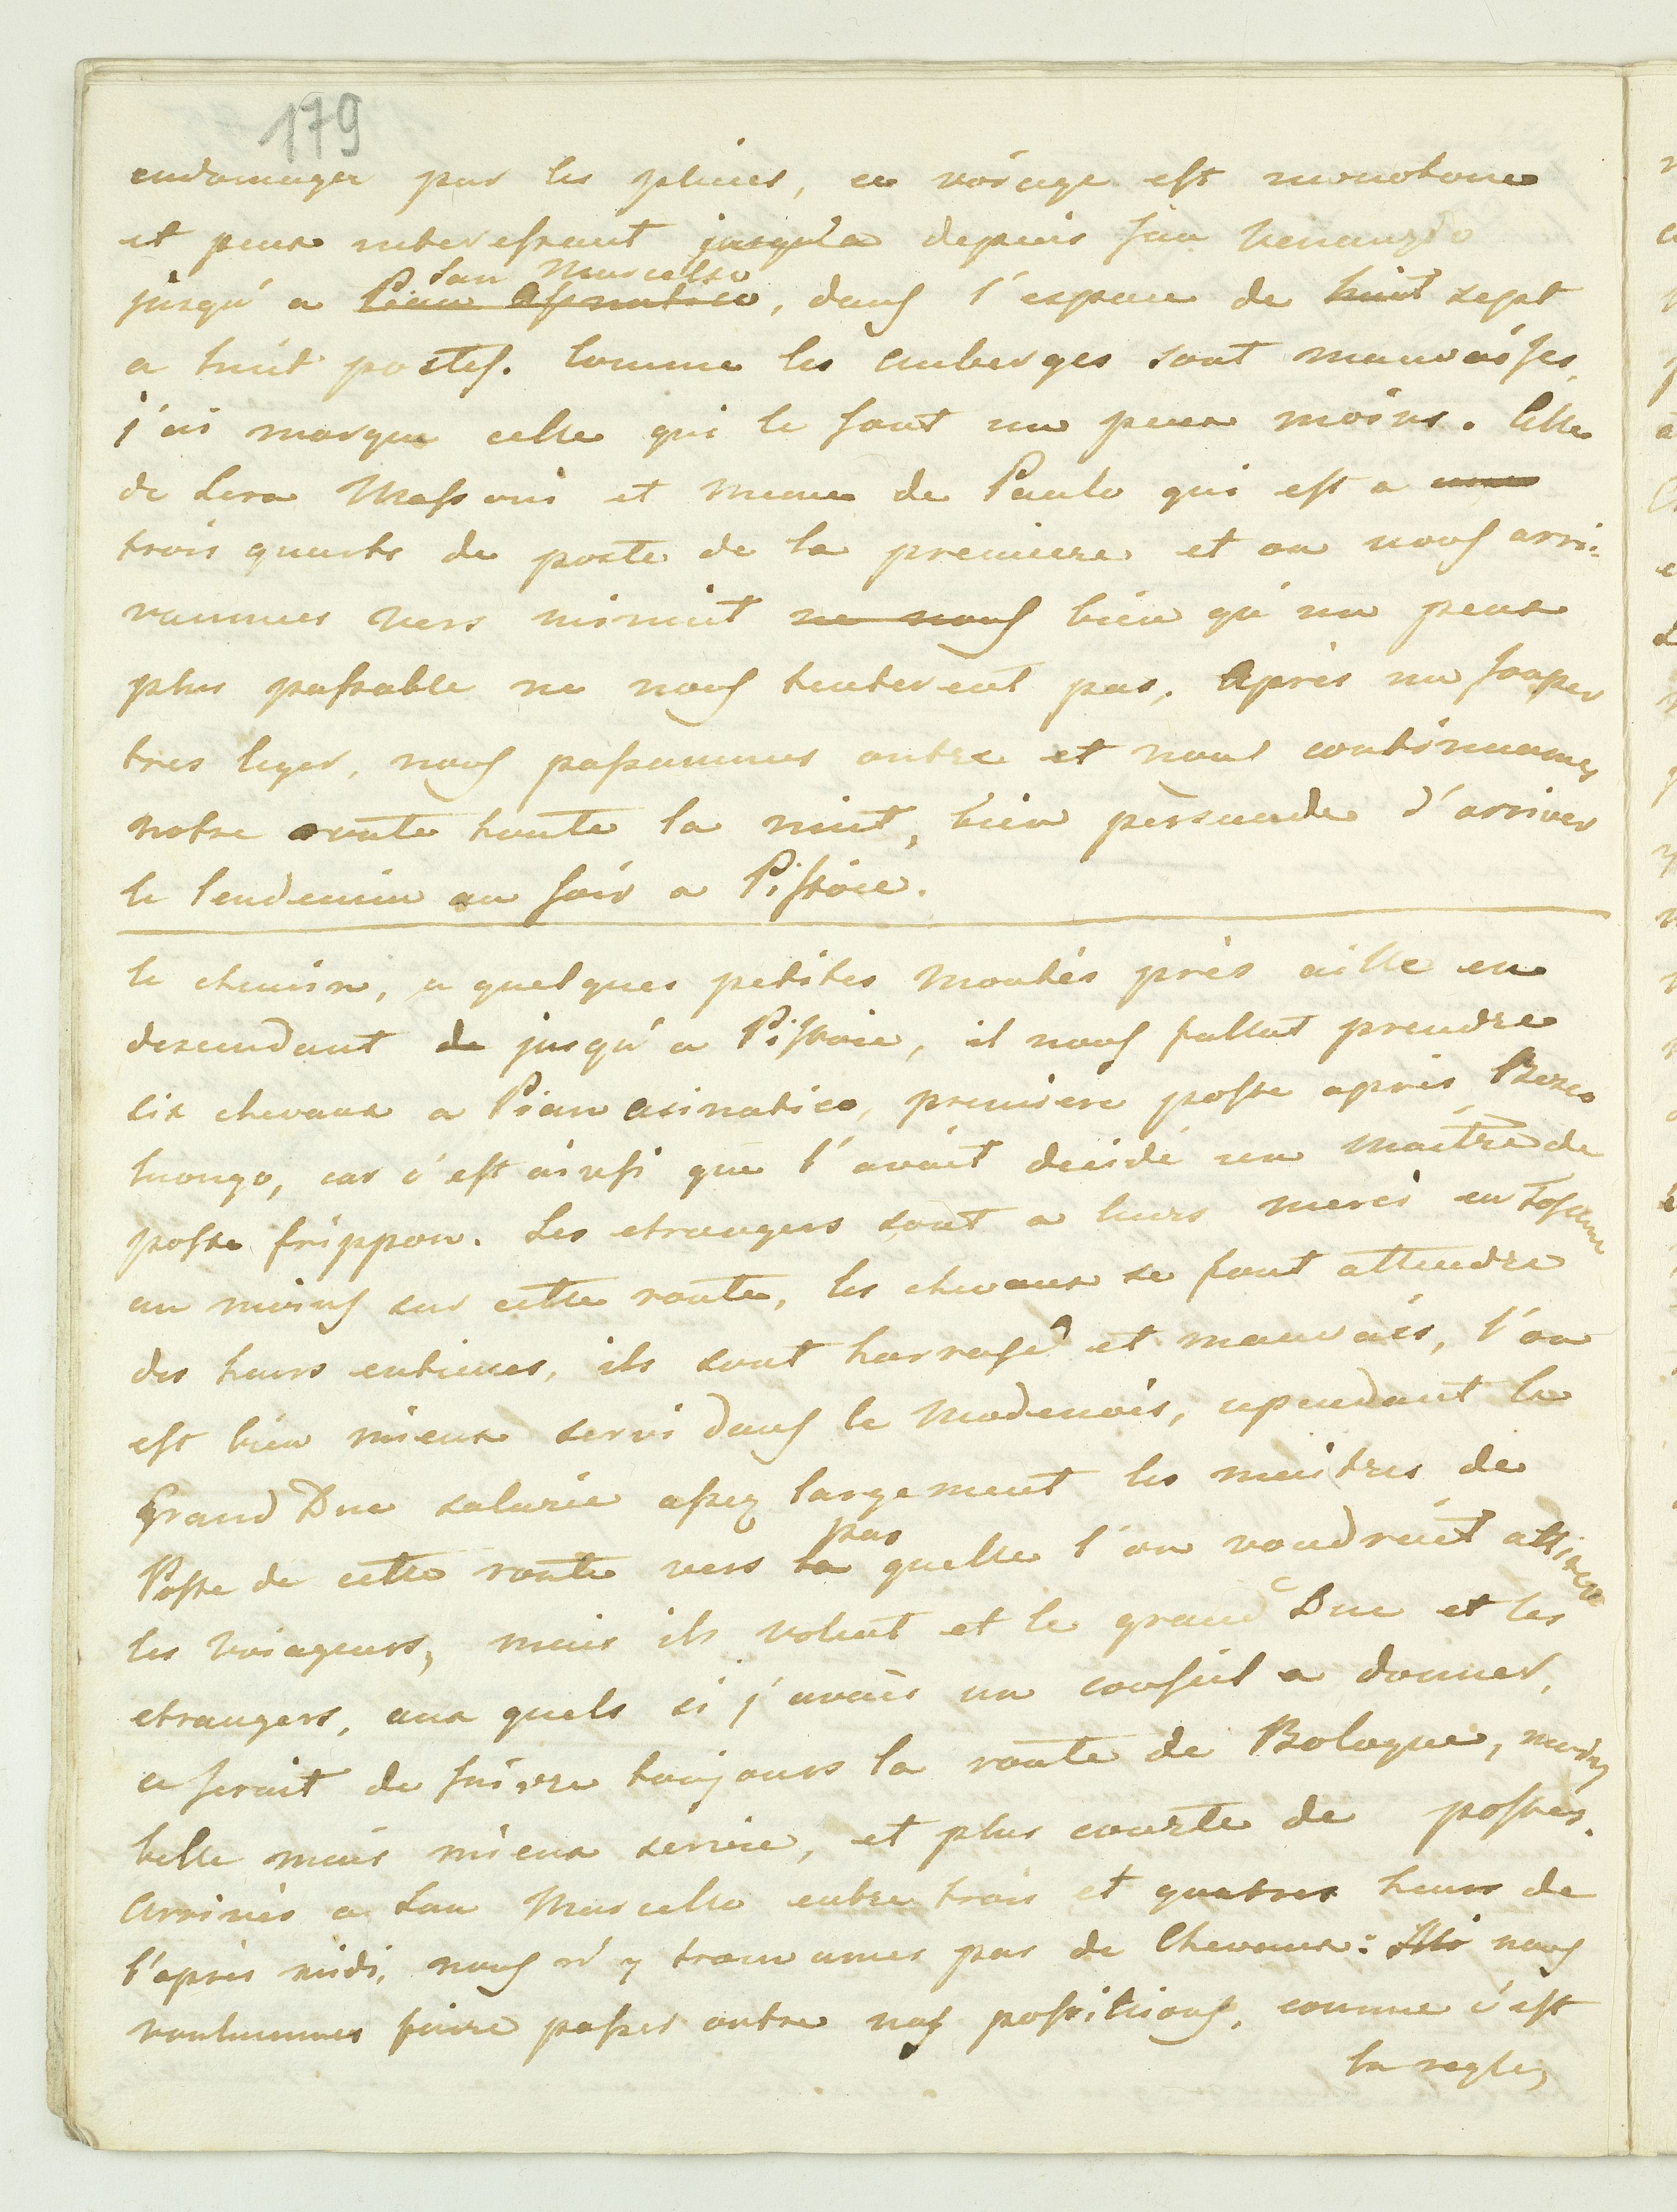 179
endomager par les pluies, ce voiage est monotone
et peux interessant jusqu'a depuis San Venanzio
San Marcello
jusqu'a Pian Asinatico, dans l'espace de huit sept
a huit postes. Comme les auberges sont mauvaises,
j'ai marque celle qui le sont un peux moins. Celle
de Sera Massoni et meme de Paulo qui est a une
trois quarts de poste de la premiere et ou nous arri-
vammes vers minuit ne nous bien qu'un peux
plus passable ne nous tenterent pas, Après un souper
tres leger, nous passammes outre et nous continuames
notre route toute la nuit, bien persuade d'arriver
le lendemin au soir a Pistoie.
le chemin, a quelques petites montés près aille en
descendant de jusqu'a Pistoie, il nous fallut prendre
six chevaux a Pian asinatico, premiere poste après Bosco
luongo, car c'est ainsi que l'avait decidé un maitre de
poste frippon. Les etrangers sont a leurs merci en Toscane
au moins sur cette route, les chevaux se font attendre
des heurs entieres, ils sont harrassé et mauvais, l'on
est bien mieux servi dans le Modenois, cependant le
Grand Duc salarie assez largement les maitres de
pas
Poste de cette route vers la quelle l'on voudrait attirer
les voiageurs, mais ils volent et le grand Duc et les
etrangers, aux quels si j'avais un conseil a donner,
ce serait de suivre toujours la route de Bologne, moins
belle mais mieux servie, et plus courte de postes.
Arrivés a San Marcello entre trois et quatres heurs de
l'après midi, nous n'y trouvames pas de Chevaux: nous
voulummes faire passer outre nos postilions, comme c'est
la regle,